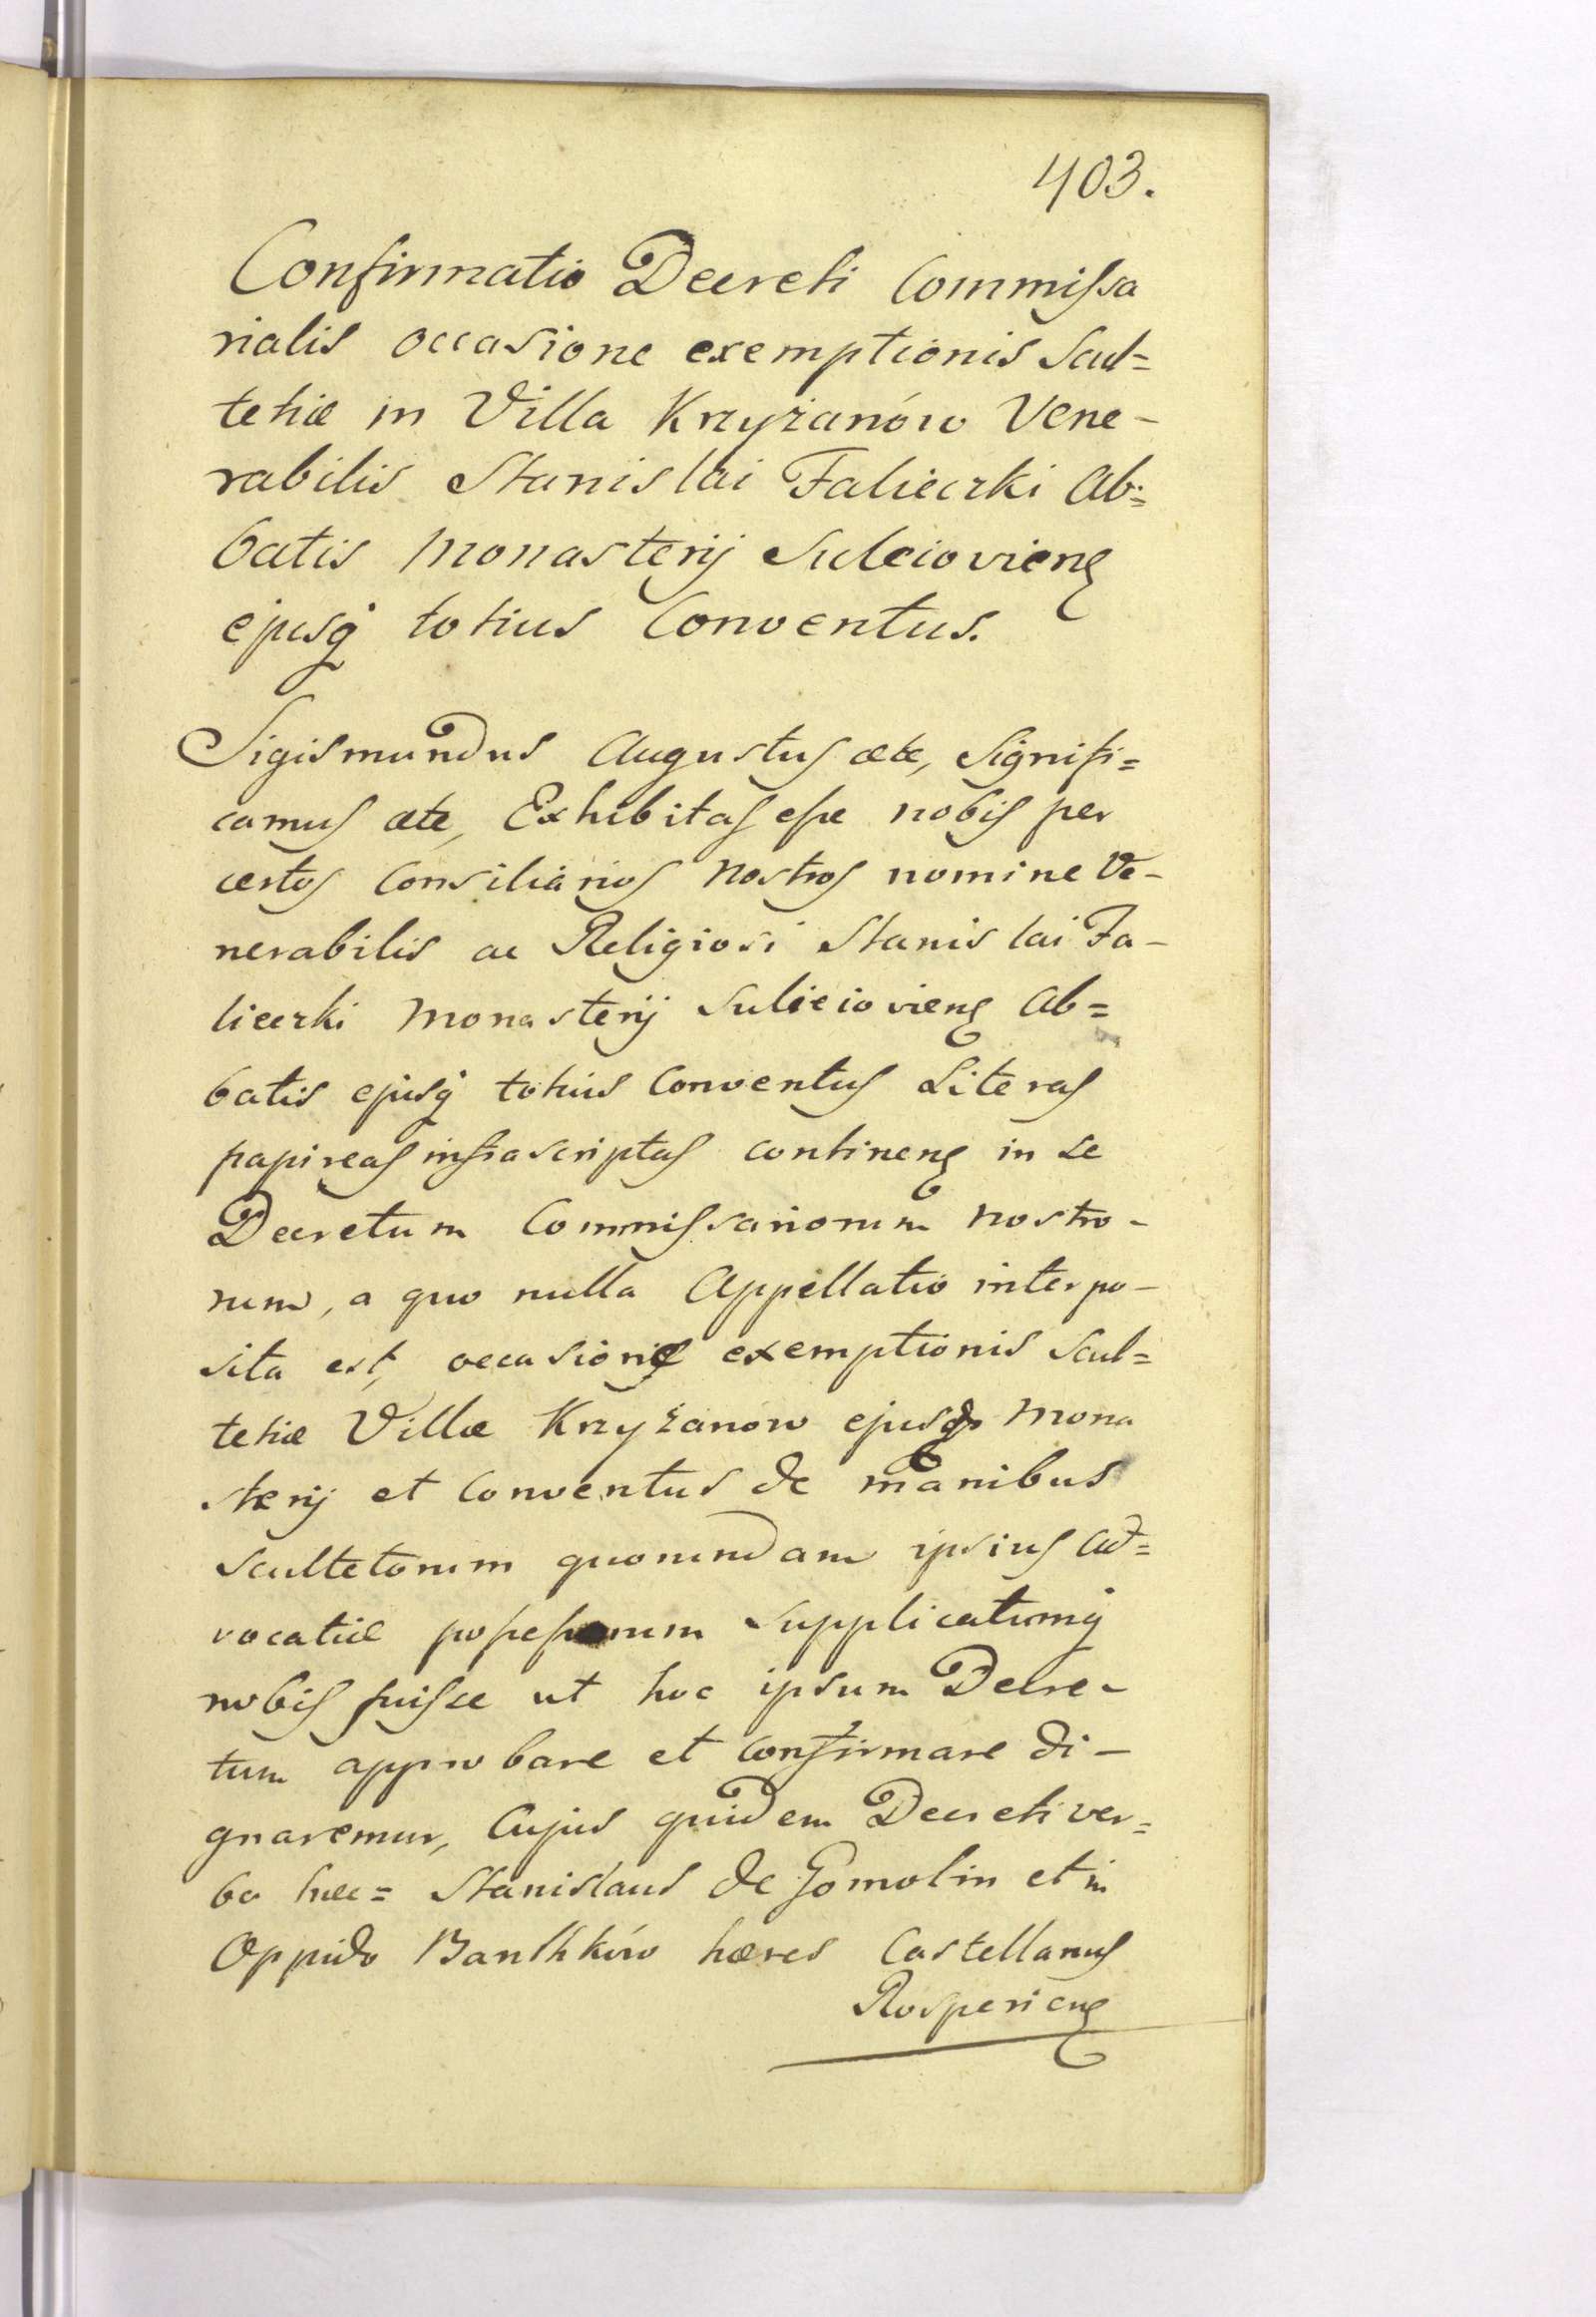 403.
Confirmatio Decreti Commissa
rialis occasione exemptionis Scul=
tetiæ in Villa Krzyżanów Vene-
rabilis Stanislai Falieczki Ab=
batis Monasterij Suleioviens
ejusq totius Conventus.
Sigismundus Augustus etc, Signifi=
camus etc, Exhibitas esse nobis per
certos Consiliarios Nostros nomine Ve-
nerabilis ac Religiosi Stanislai Fa-
lieczki Monasterij Sulieioviens Ab=
batis ejusq totius Conventus Literas
papireas infrascriptas continens in se
Decretum Commissariorum nostro-
rum, a quo nulla Appellatio interpo-
sita est, occasione exemptionis Scul=
tetiæ Villæ Krzyżanow ejusd Mona
sterij et Conventus de manibus
Scultetorum quorundam ipsius Ad=
vocatiæ possessorum Supplicatumq
nobis fuisse ut hoc ipsum Decre-
tum approbare et confirmare di-
gnaremur, Cujus quidem Decreti ver=
ba hæc= Stanislaus de Gomolin et in
Oppido Banlhków hæres Castellanus
Rosperiens